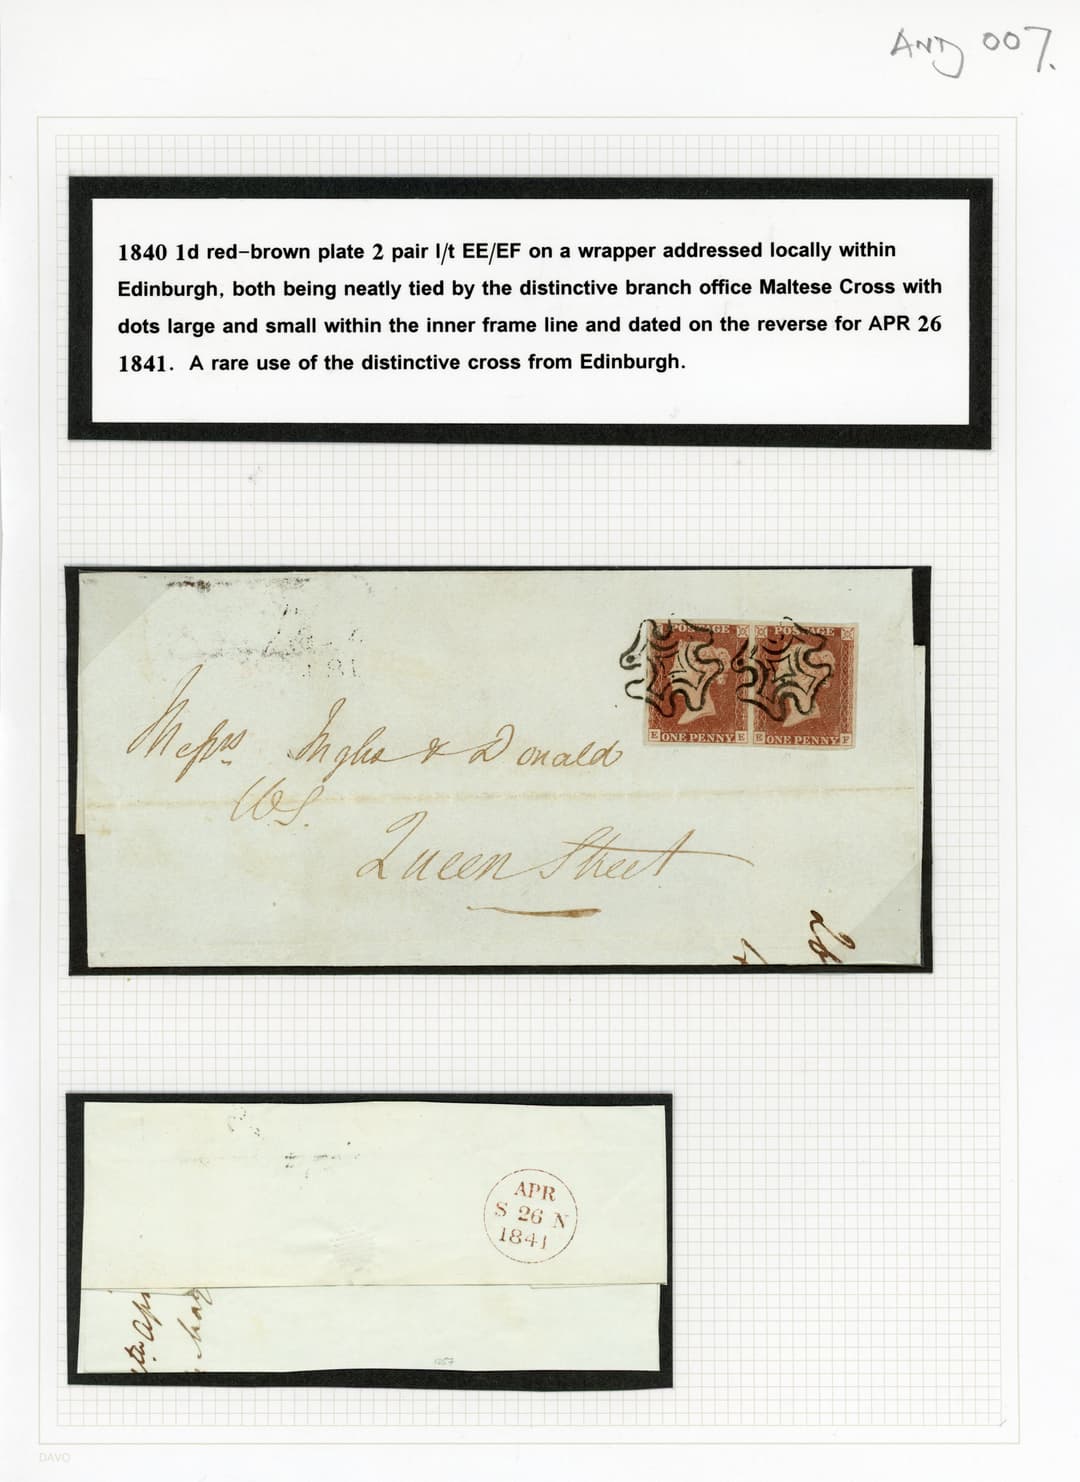 AND 007.
1840 1d red-brown plate 2 pair l/t EE/EF on a wrapper addressed locally within
Edinburgh, both being neatly tied by the distinctive branch office Maltese Cross with
dots large and small within the inner frame line and dated on the reverse for APR 26
1841. A rare use of the distinctive cross from Edinburgh.
POSTAGE
POSTAGE
E ONE PENNY E
E ONE PENNY F
Messrs Inglis & Donald
WS.
Queen Street
APR
S 26 N
1841
DAVO